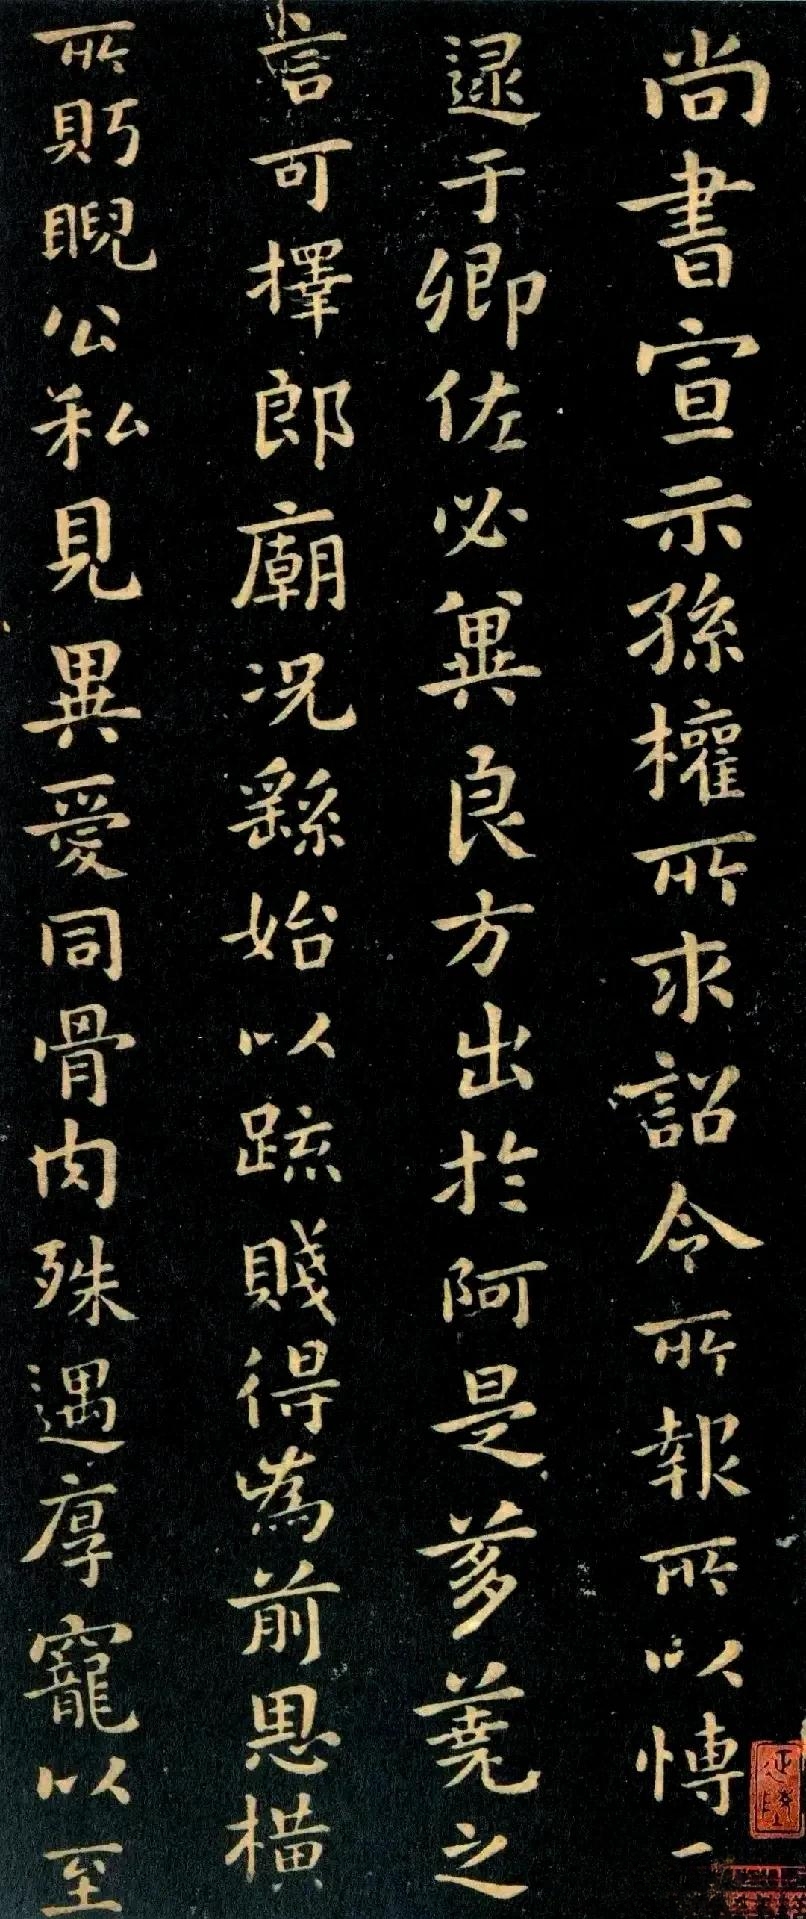 尚書宣示孫權所求詔令所報所以博
逮于卿佐必冀良方出於阿是芻蕘之
言可擇郎廟况繇始以疏賤得為前恩橫
所眄睨公私見異愛同骨肉殊遇厚寵以至